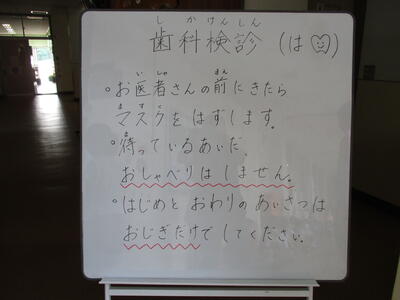 しかけんしん
歯科検診 (は)
いしゃ まえ
・お医者さんの前にきたら
ますく
マスクをはずします。
ま
・待っているあいだ、
おしゃべりはしません。
・はじめと おわりの あいさつは
おじぎだけで してください。